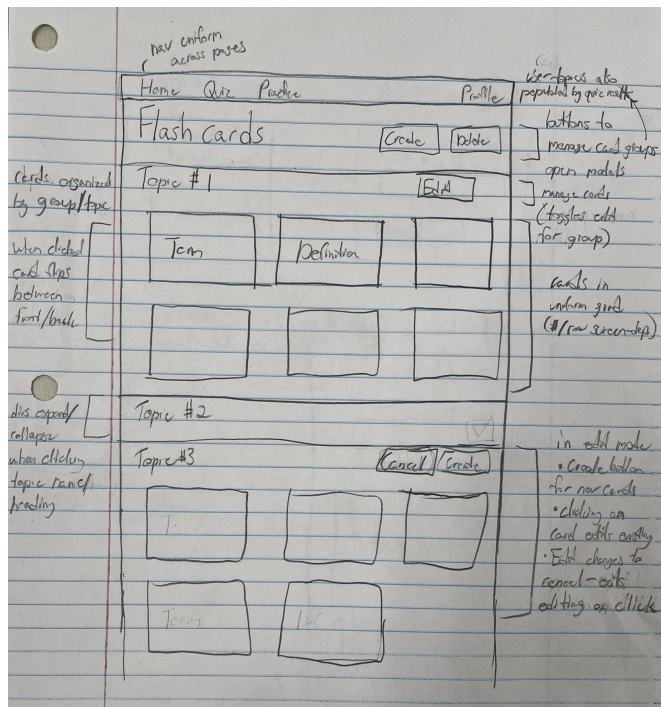 nav uniform
across pages
Home Quiz Practice Profile
user-topics also
populated by quiz results
Flash cards
Create Delete
buttons to
manage card groups
open modals
Topic #1
Edit
manage cards
(toggles edit
for group)
cards organized
by group/topic
when clicked
card flips
between
front/back
Term Definition
cards in
uniform grid
(#/row screen-dep)
Topic #2
divs expand/
collapse
when clicking
topic name/
heading
Topic #3
Cancel Create
in edit mode
• Create button
for new cards
• clicking on
card edits existing
• Edit changes to
cancel - exits
editing on click
T
Term